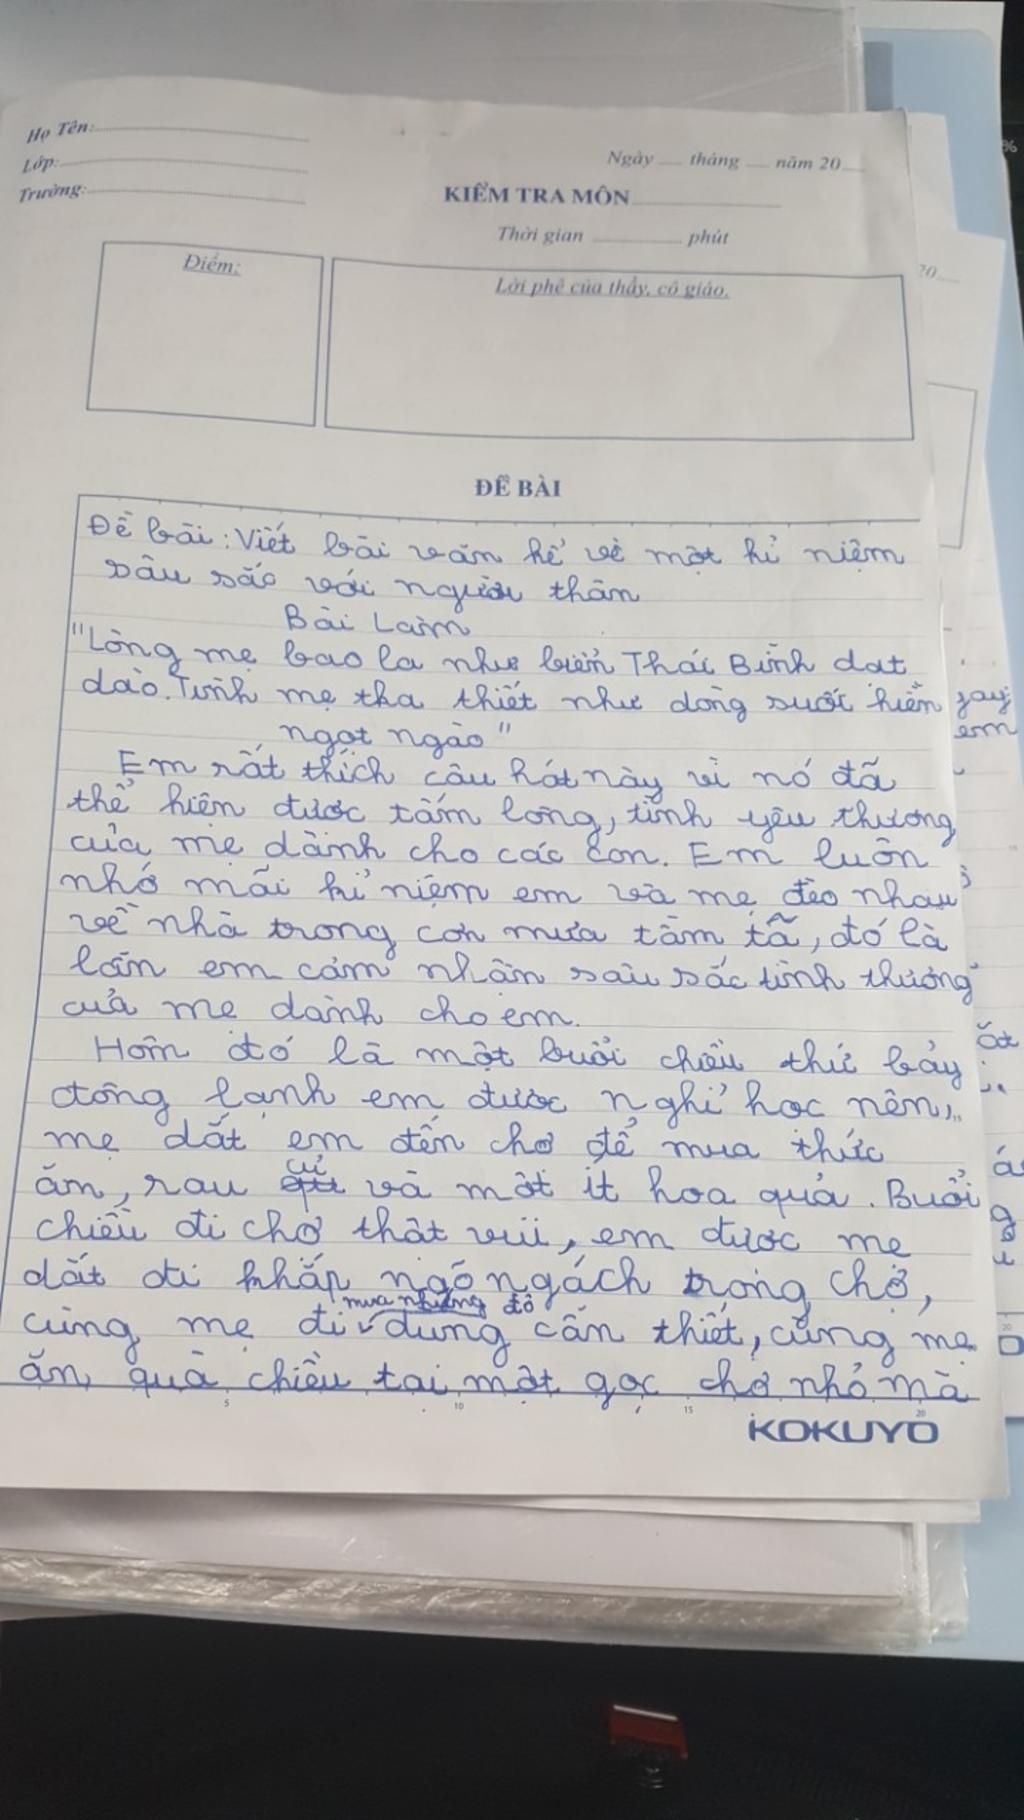 Họ Tên:
Lớp:
Trường:
Ngày tháng năm 20
KIỂM TRA MÔN
Thời gian phút
Điểm:
Lời phê của thầy, cô giáo.
ĐỀ BÀI
Đề bài: Viết bài văn kể về một kỉ niệm
sâu sắc với người thân
Bài Làm
"Lòng mẹ bao la như biển Thái Bình dạt
dào. Tình mẹ tha thiết như dòng suối hiền
ngọt ngào"
Em rất thích câu hát này vì nó đã
thể hiện được tấm lòng, tình yêu thương
của mẹ dành cho các con. Em luôn
nhớ mãi kỉ niệm em và mẹ đèo nhau
về nhà trong cơn mưa tầm tã, đó là
lần em cảm nhận sâu sắc tình thương
của mẹ dành cho em.
Hôm đó là một buổi chiều thứ bảy
đông lạnh em được nghỉ học nên,
mẹ dắt em đến chợ để mua thức
ăn, rau củ và một ít hoa quả. Buổi
chiều đi chợ thật vui, em được mẹ
dắt đi khắp ngõ ngách trong chợ,
cùng mẹ đi mua những đồ dùng cần thiết, cùng mẹ
ăn quà chiều tại một góc chợ nhỏ mà
5 10 15 20
KOKUYO